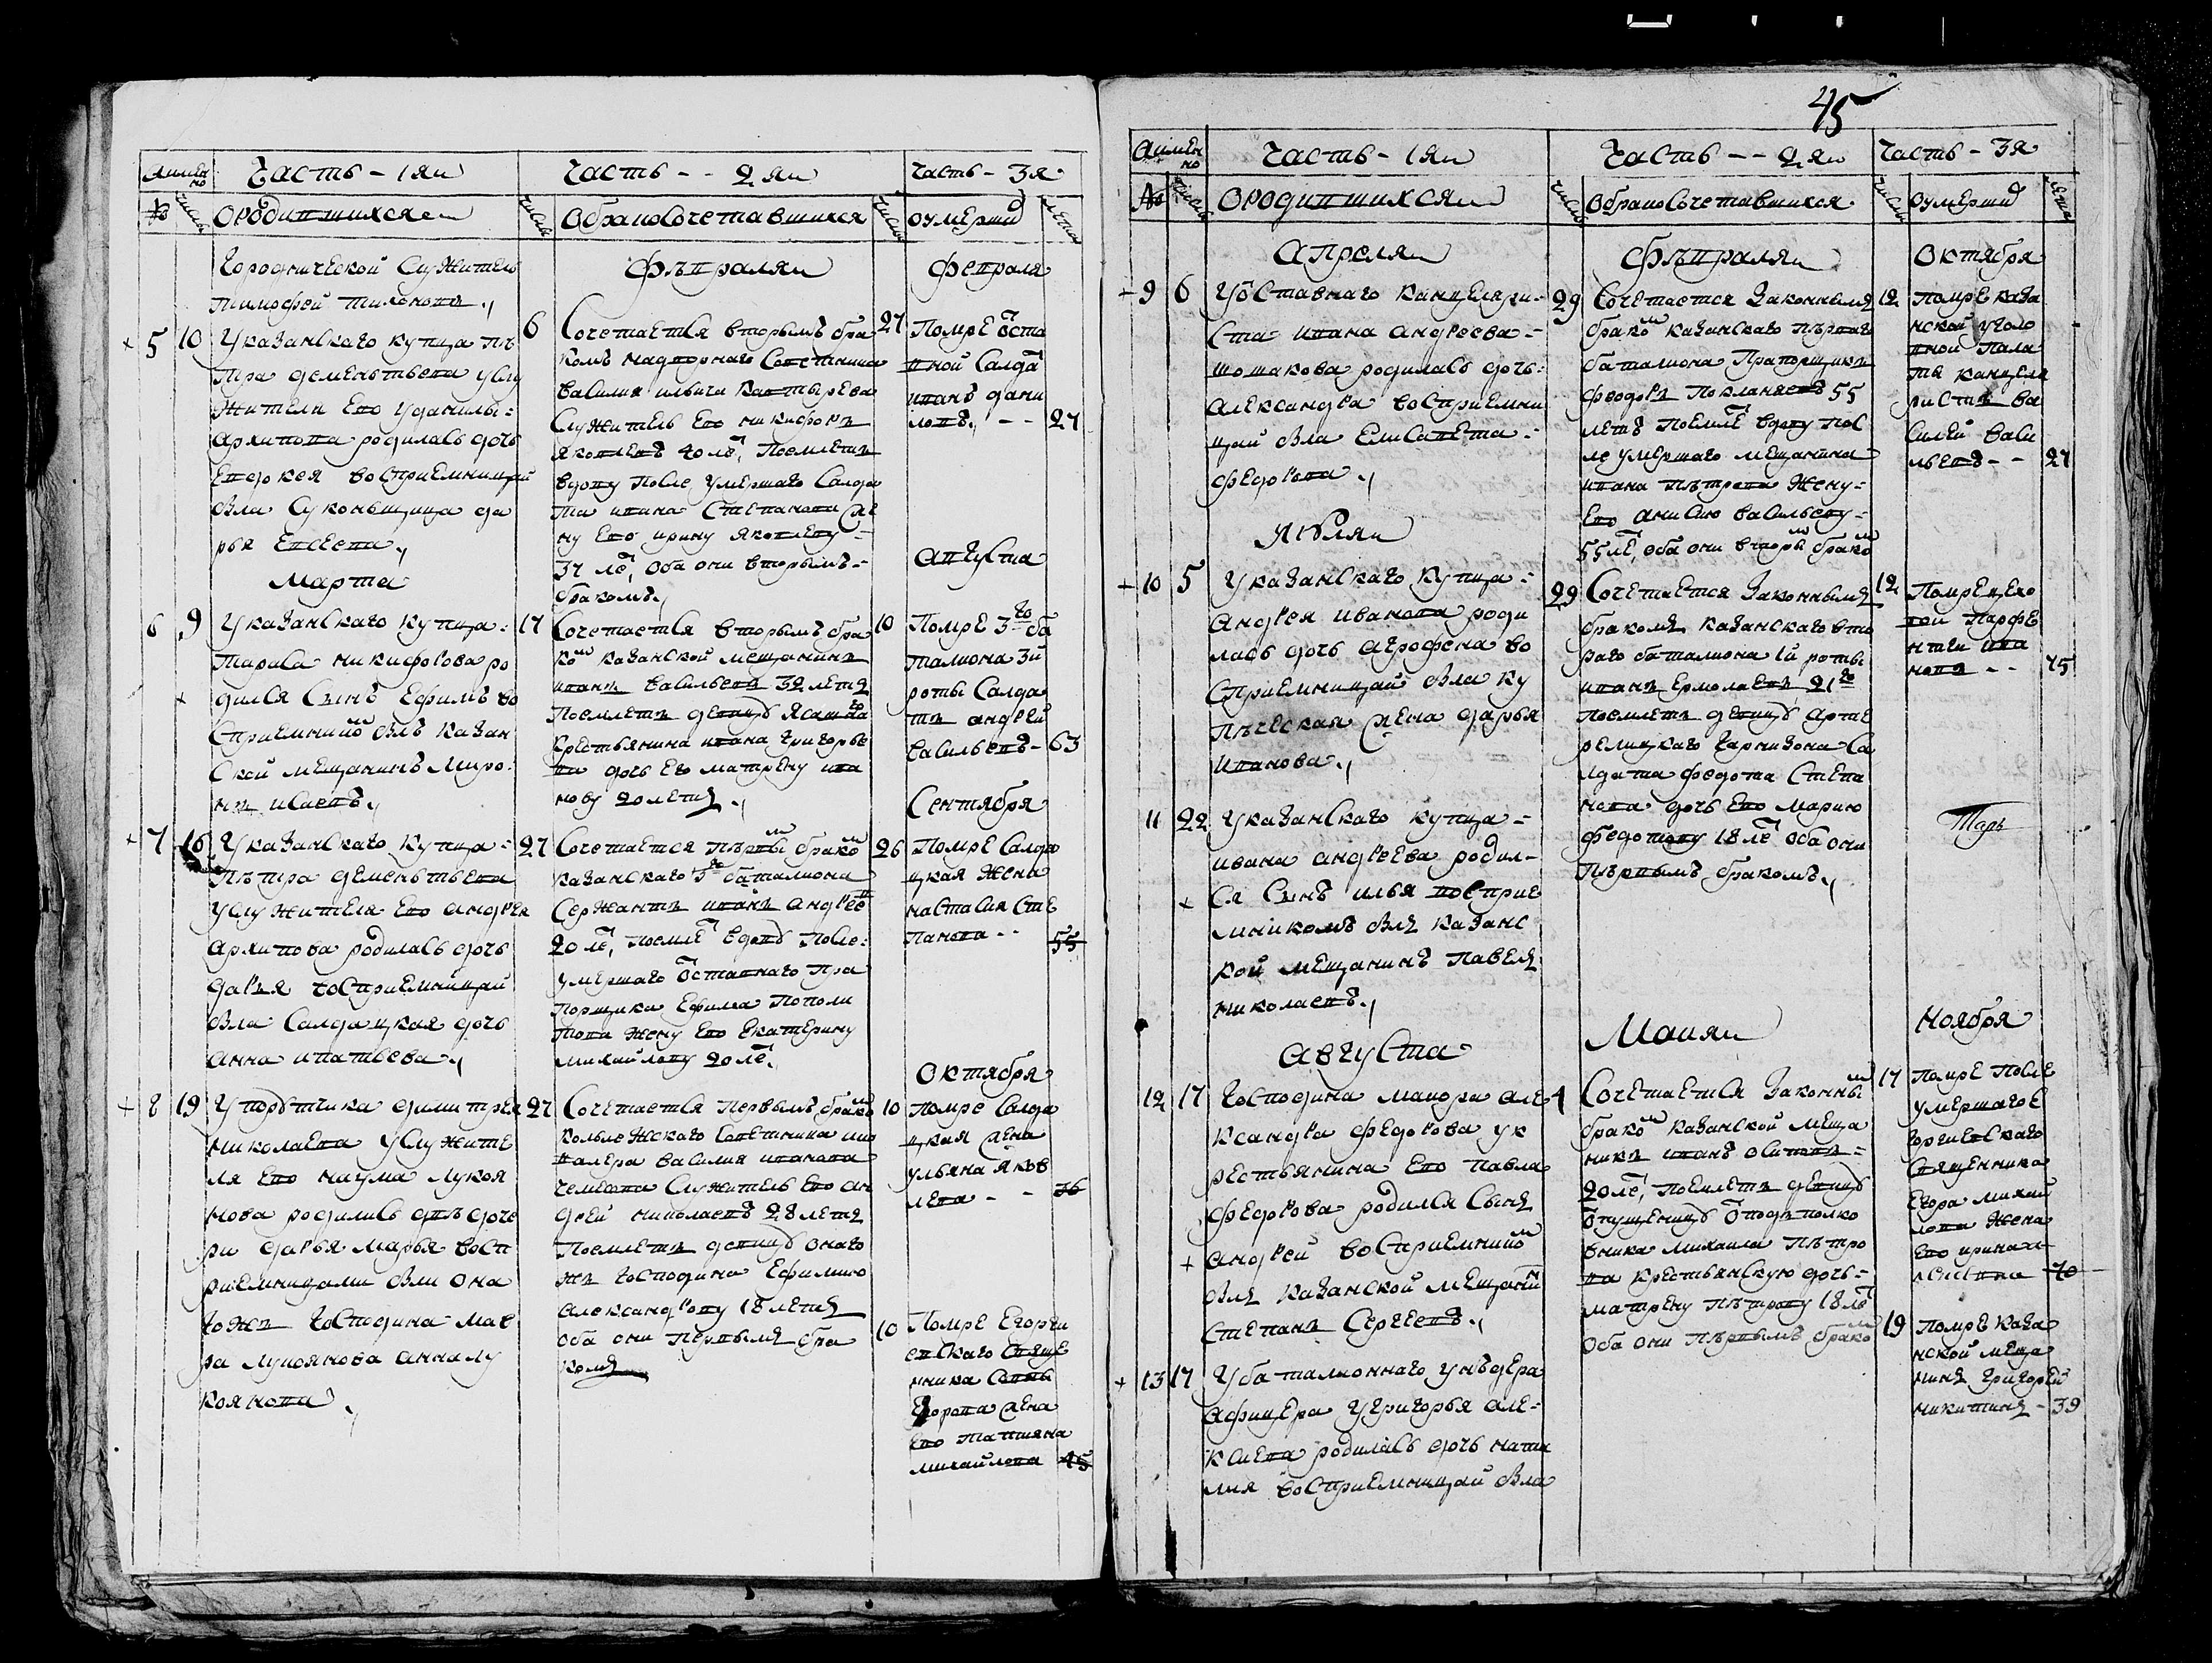 45
Часть - 1 я
Часть - - 2 я
Часть - 3 я
№
Числы
о родившихся
Числы
о бракосочетавшихся
Числы
о умерших
лета
городнической служитель
Тимофей Тихонов
5 10 У казанскаго купца Пе
тра Дементьева у слу
жителя ево у Данилы
Архипова родилась дочь
Евдокея восприемницей
была суконьщица Да
рья Евсеева
Марта
6 9 У казанскаго купца
Тараса Никифорова ро
дился сынъ Ефимъ во
сприемником былъ казан
ской мещанинъ Миро
нъ Исаевъ
7 16 У казанскаго купца
Петра Дементьева
у служителя ево Андрея
Архипова родилась дочь
Дарья восприемницей
была салдацкая дочь
Анна Ипатьева
8 19 У порутчика Димитрея
Николаева у служите
ля ево Наума Лукоя
нова родились две доче
ри Дарья Марья восп
риемницами были она
гожъ господина
ра Лукоянова Анна Лу
коянова
Февраля
6 Сочетается вторымъ бра
комъ надворнаго советника
Василия Ильича Каптырева
служитель ево Никифоръ
Яковлевъ 40 ле, поемлетъ
вдову после умершаго салда
та Ивана Степанова же
ну ево Ирину Яковлеву
37 ле, оба они вторымъ
бракомъ
17 Сочетается вторымъ бра
ком казанской мещанинъ
Иванъ Васильевъ 32 летъ
поемлетъ девицу
крестьянина Ивана Григорье
ва дочь его Матрену Ива
нову 20 летъ
27 Сочетается первым браком
казанскаго 3го баталиона
сержантъ Иванъ Андреев
20 ле, поемлет вдову после
умершаго отставнаго пра
порщика Ефима Пополи
това жену ево Екатерину
Михайлову 20 ле
27 Сочетается первымъ браком
кольлежскаго советника и
валера Василия Иванова
служитель ево Ан
дрей Николаевъ 28 летъ
поемлетъ девицу онаго
жъ господина Ефимию
Александрову 18 летъ
оба они первымъ бра
комъ
Февраля
27 Помре отста
вной салдат
Иванъ Дани
ловъ - - 27
Августа
10 Помре 3го ба
талиона 3й
роты салда
тъ Андрей
Васильевъ - 63
Сентября
26 Помре салда
цкая жена
Настасия Сте
панова - - 55
Октября
10 Помре салда
цкая жена
Ульяна Яков
лева - - 36
10 Помре Егорги
евскаго свяще
нника
Егорова жена
ево Татияна
Михайлова 45
Часть - 1 я
Часть - - 2 я
Часть - 3 я
№
Числы
о родившихся
Числы
о бракосочетавшихся
Числы
о умерших
лета
Апреля
9 6 У отставнаго канцеляри
ста Ивана Андреева
Шошакова родилась дочь
Александра восприемни
цей была Елисавета
Федорова
Июля
10 5 У казанскаго купца
Андрея Иванова роди
лась дочь Агрофена во
сприемницей была ку
печеская жена Дарья
Иванова
11 22 У казанскаго купца
Ивана Андреева родил
ся сынъ Илья восприе
мникомъ былъ казанс
кой мещанинъ Павелъ
Николаевъ
Августа
12 17 Господина маиора Але
ксандра Федорова у к
рестьянина ево Павла
Федорова родился сынъ
Андрей восприемником
былъ казанской мещанин
Степанъ Сергеевъ
13 17 У баталионнаго унъдера
афицера у Григорья Але
ксиева родилась дочь Ната
лия восприемницей была
Февраля
29 Сочетается законнымъ
браком казанскаго перваго
баталиона прапорщикъ
Феодоръ 55
летъ поемлет вдову пос
ле умершаго мещанина
Ивана Петрова жену
ево Анисию Васильеву
55 ле, оба они вторым браком
29 Сочетается законнымъ
бракомъ казанскаго вто
раго баталиона 1й роты
Иванъ Ермолаевъ 21го
поемлетъ девицу
гарнизона са
лдата Федота Степа
нова дочь ево Марию
Федотову 18 ле оба они
первымъ бракомъ
Маия
4 Сочетается законным
браком казанской меща
нинъ Иванъ Осиповъ
20 ле, поемлетъ девицу
отпущеницу от подполко
вника Михаила Петро
ва крестьянскую дочь
Матрену Петрову 18 лет
оба они первымъ браком
Октября
12 Помре каза
нской уголо
вной пала
ты канцеля
ристъ Ва
силей Васи
льевъ - - 27
12 Помре цехо
вой Парфе
нтей Ива
новъ - - 75
Ноября
17 Помре после
умершаго Е
горгиевскаго
священника
Егора Михай
лова жена
ево Ирина
70
19 Помре каза
нской меща
нинъ Григорей
Никитинъ - 39